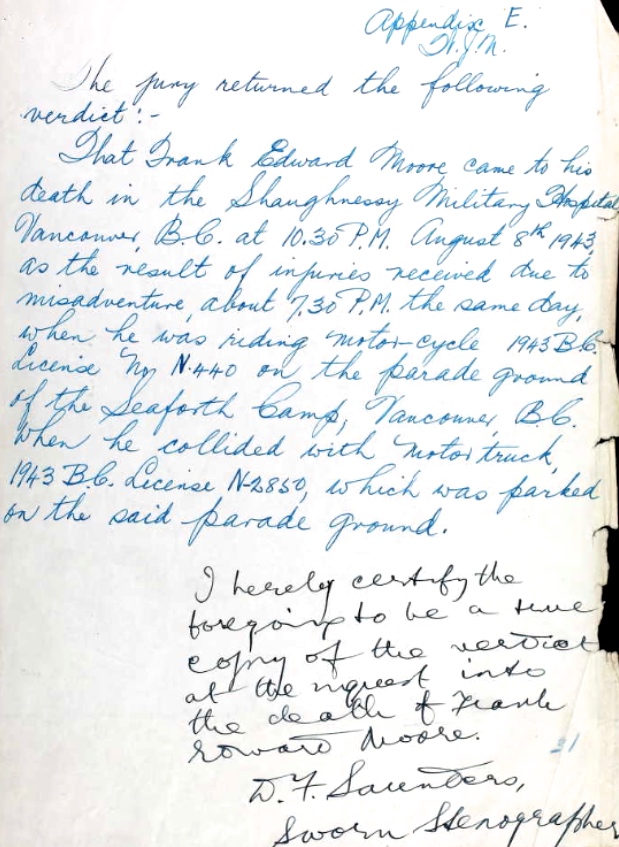 Appendix E.
W.J.N.
The jury returned the following
verdict:-
That Frank Edward Moore came to his
death in the Shaughnessy Military Hospital
Vancouver, B.C. at 10.30 P.M. August 8th 1943,
as the result of injuries received due to
misadventure, about 7.30 P.M. the same day,
when he was riding motor-cycle 1943 B.C.
License No N-440 on the parade ground
of the Seaforth Camp, Vancouver, B.C.
when he collided with motor truck,
1943 B.C. License N-2850, which was parked
on the said parade ground.
I hereby certify the
foregoing to be a true
copy of the verdict
at the inquest into
the death of Frank
Edward Moore.
21
D. F. Saunders,
Sworn Stenographer